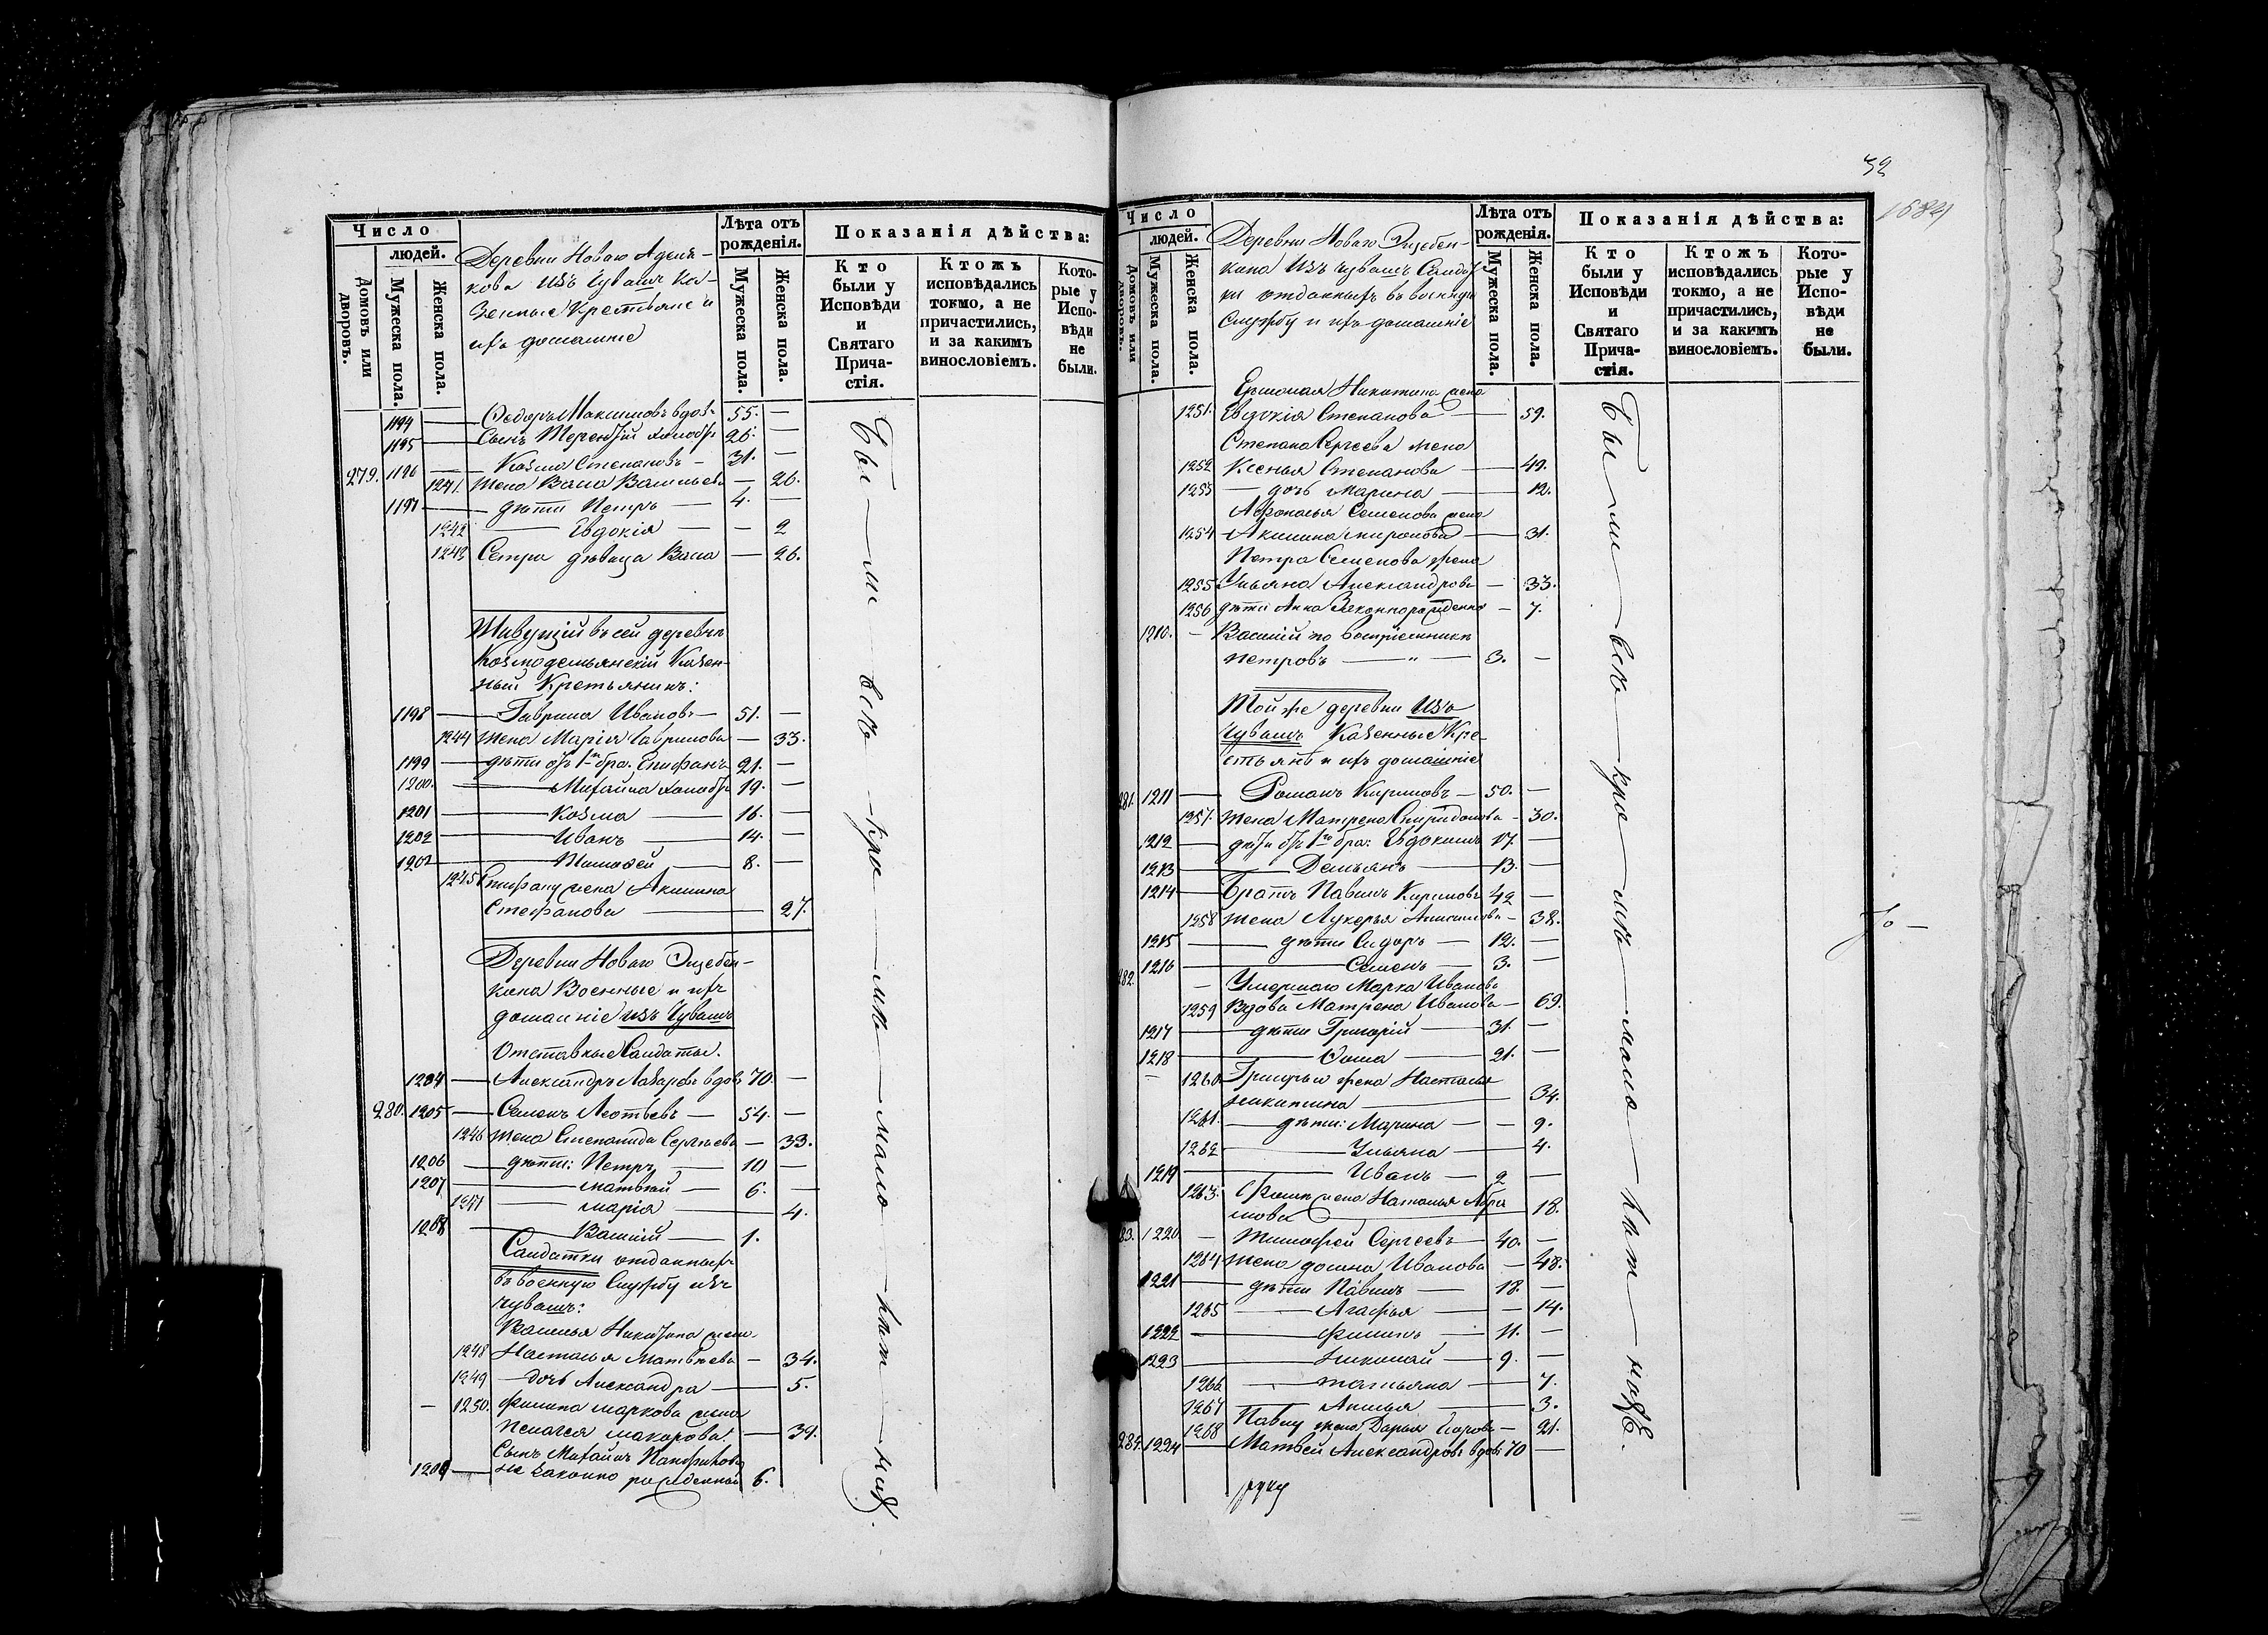 Число
людей.
Домовъ или дворовъ.
Мужеска пола.
Женска пола.
Деревни Новаго Аделя-
кова изъ Чувашъ Ка-
зенные Крестьяне и
ихъ домашніе
Лѣта отъ рожденія.
Мужеска пола.
Женска пола.
Показанія дѣйства:
Кто были у Исповѣди и Святаго Прича-стія.
Ктожъ исповѣдались токмо, а не причастились, и за какимъ винословіемъ.
Кото-рые у Испо-вѣди не были.
1194 — Ѳедоръ Максимовъ вдовъ 55. —
1195 — Сынъ Терентій холостъ 26. —
279. 1196 — Козма Степановъ — 31. —
1241. жена Васа Васильева — 26.
1197 — дѣти Петръ — 4. —
1242 — Евдокія — — 2
1243 Сестра дѣвица Васа — 26.
Живущій въ сей деревнѣ
Козмодемьянскій Казен-
ный Крестьянинъ:
1198 — Гаврила Ивановъ — 51. —
1244 жена Марія Гаврилова — 33.
1199 — дѣти отъ 1го бра. Епифанъ 21. —
1200. — Михайла холостъ 19. —
1201 — Козма — 16. —
1202 — Иванъ — 14. —
1203 — Тимоѳей — 8. —
1245 Епифану жена Акилина
Стефанова — 27.
Деревни Новаго
кина Военные и ихъ
домашніе изъ Чувашъ
Отставные Солдаты.
1204 — Александръ Лазаревъ вдовъ 70. —
280. 1205 — Семенъ Леонтьевъ — 54. —
1246 жена Степанида Сергѣева — 33.
1206 — дѣти: Петръ — 10 —
1207 — Матвѣй — 6. —
1247 — Марія — 4.
1208 — Василій — 1.
Солдатки отданныхъ
въ военную Службу изъ
чувашъ:
Василья Никитина жена
1248 Настасья Матвѣева — 34.
1249 — дочь Александра — 5.
— 1250. Филипа Маркова жена
Пелагея Макарова. — 39.
Сынъ Михаилъ Панфиловъ
1209 — не законно рожденный 6.
Бы — ли — всѣ — кро — мѣ — мало — лѣт — них.
32
1684
Число
людей.
Домовъ или дворовъ.
Мужеска пола.
Женска пола.
Деревни Новаго
кина изъ чувашъ Солдат
ки отданныхъ въ военную
Службу и ихъ домашніе
Лѣта отъ рожденія.
Мужеска пола.
Женска пола.
Показанія дѣйства:
Кто были у Исповѣди и Святаго Прича-стія.
Ктожъ исповѣдались токмо, а не причастились, и за какимъ винословіемъ.
Кото-рые у Испо-вѣди не были.
Никитина жена
1251. Евдокія Степанова — 59.
Степана Сергеева жена
1252 Ксенья Степанова — 49.
1253 — дочь Марина — 12.
Афанасья Семенова жена
1254 Акилина Миронова — 31.
Петра Семенова жена
1255 Ульяна Александрова — 33.
1256 дѣти Анна Незаконнорожденна — 7.
1210. — Василій по воспріемникѣ
Петровъ — 3. —
Той же деревни Изъ
Чувашъ Казенные Кре-
стьянѣ и ихъ домашніе
281. 1211 — Романъ Кириловъ — 50. —
1257. жена Матрена Спиридонова — 30.
1212 — дѣти отъ 1го бра: Евдокимъ 17. —
1213 — Демьянъ — 13. —
1214 — Братъ Павелъ Кириловъ 42 —
1258 жена Лукерья — 38.
1215 — дѣти Сидоръ — 12. —
1216 — Семенъ — 3. —
282. — Умершаго Марка Иванова
1259 Вдова Матрена Иванова — 69.
1217 — дѣти Григорій — 31. —
1218 — Ѳома — 21. —
1260 Григорья жена Настасья
Никитина — 34.
1261. — дѣти: Марина — — 9.
1262 — Ульяна — 4.
1219 — Иванъ — 2 —
1263. жена Наталья Абра
мова — 18.
283. 1220 — Тимоѳей Сергеевъ — 40. —
1264 жена Домна Иванова — 48.
1221 — дѣти Павелъ — 18. —
1265 — Агафья — — 14.
1222 — Филипъ — 11. —
1223 — Николай — 9. —
1266 — Татьяна — 7.
1267 — Анисья — 3.
1268 Павлу жена Дарья — 21.
284. 1224 — Матвей Александровъ вдовъ 70 —
Бы — ли — всѣ — кро — мѣ — мало — лѣт — нихъ.
руку